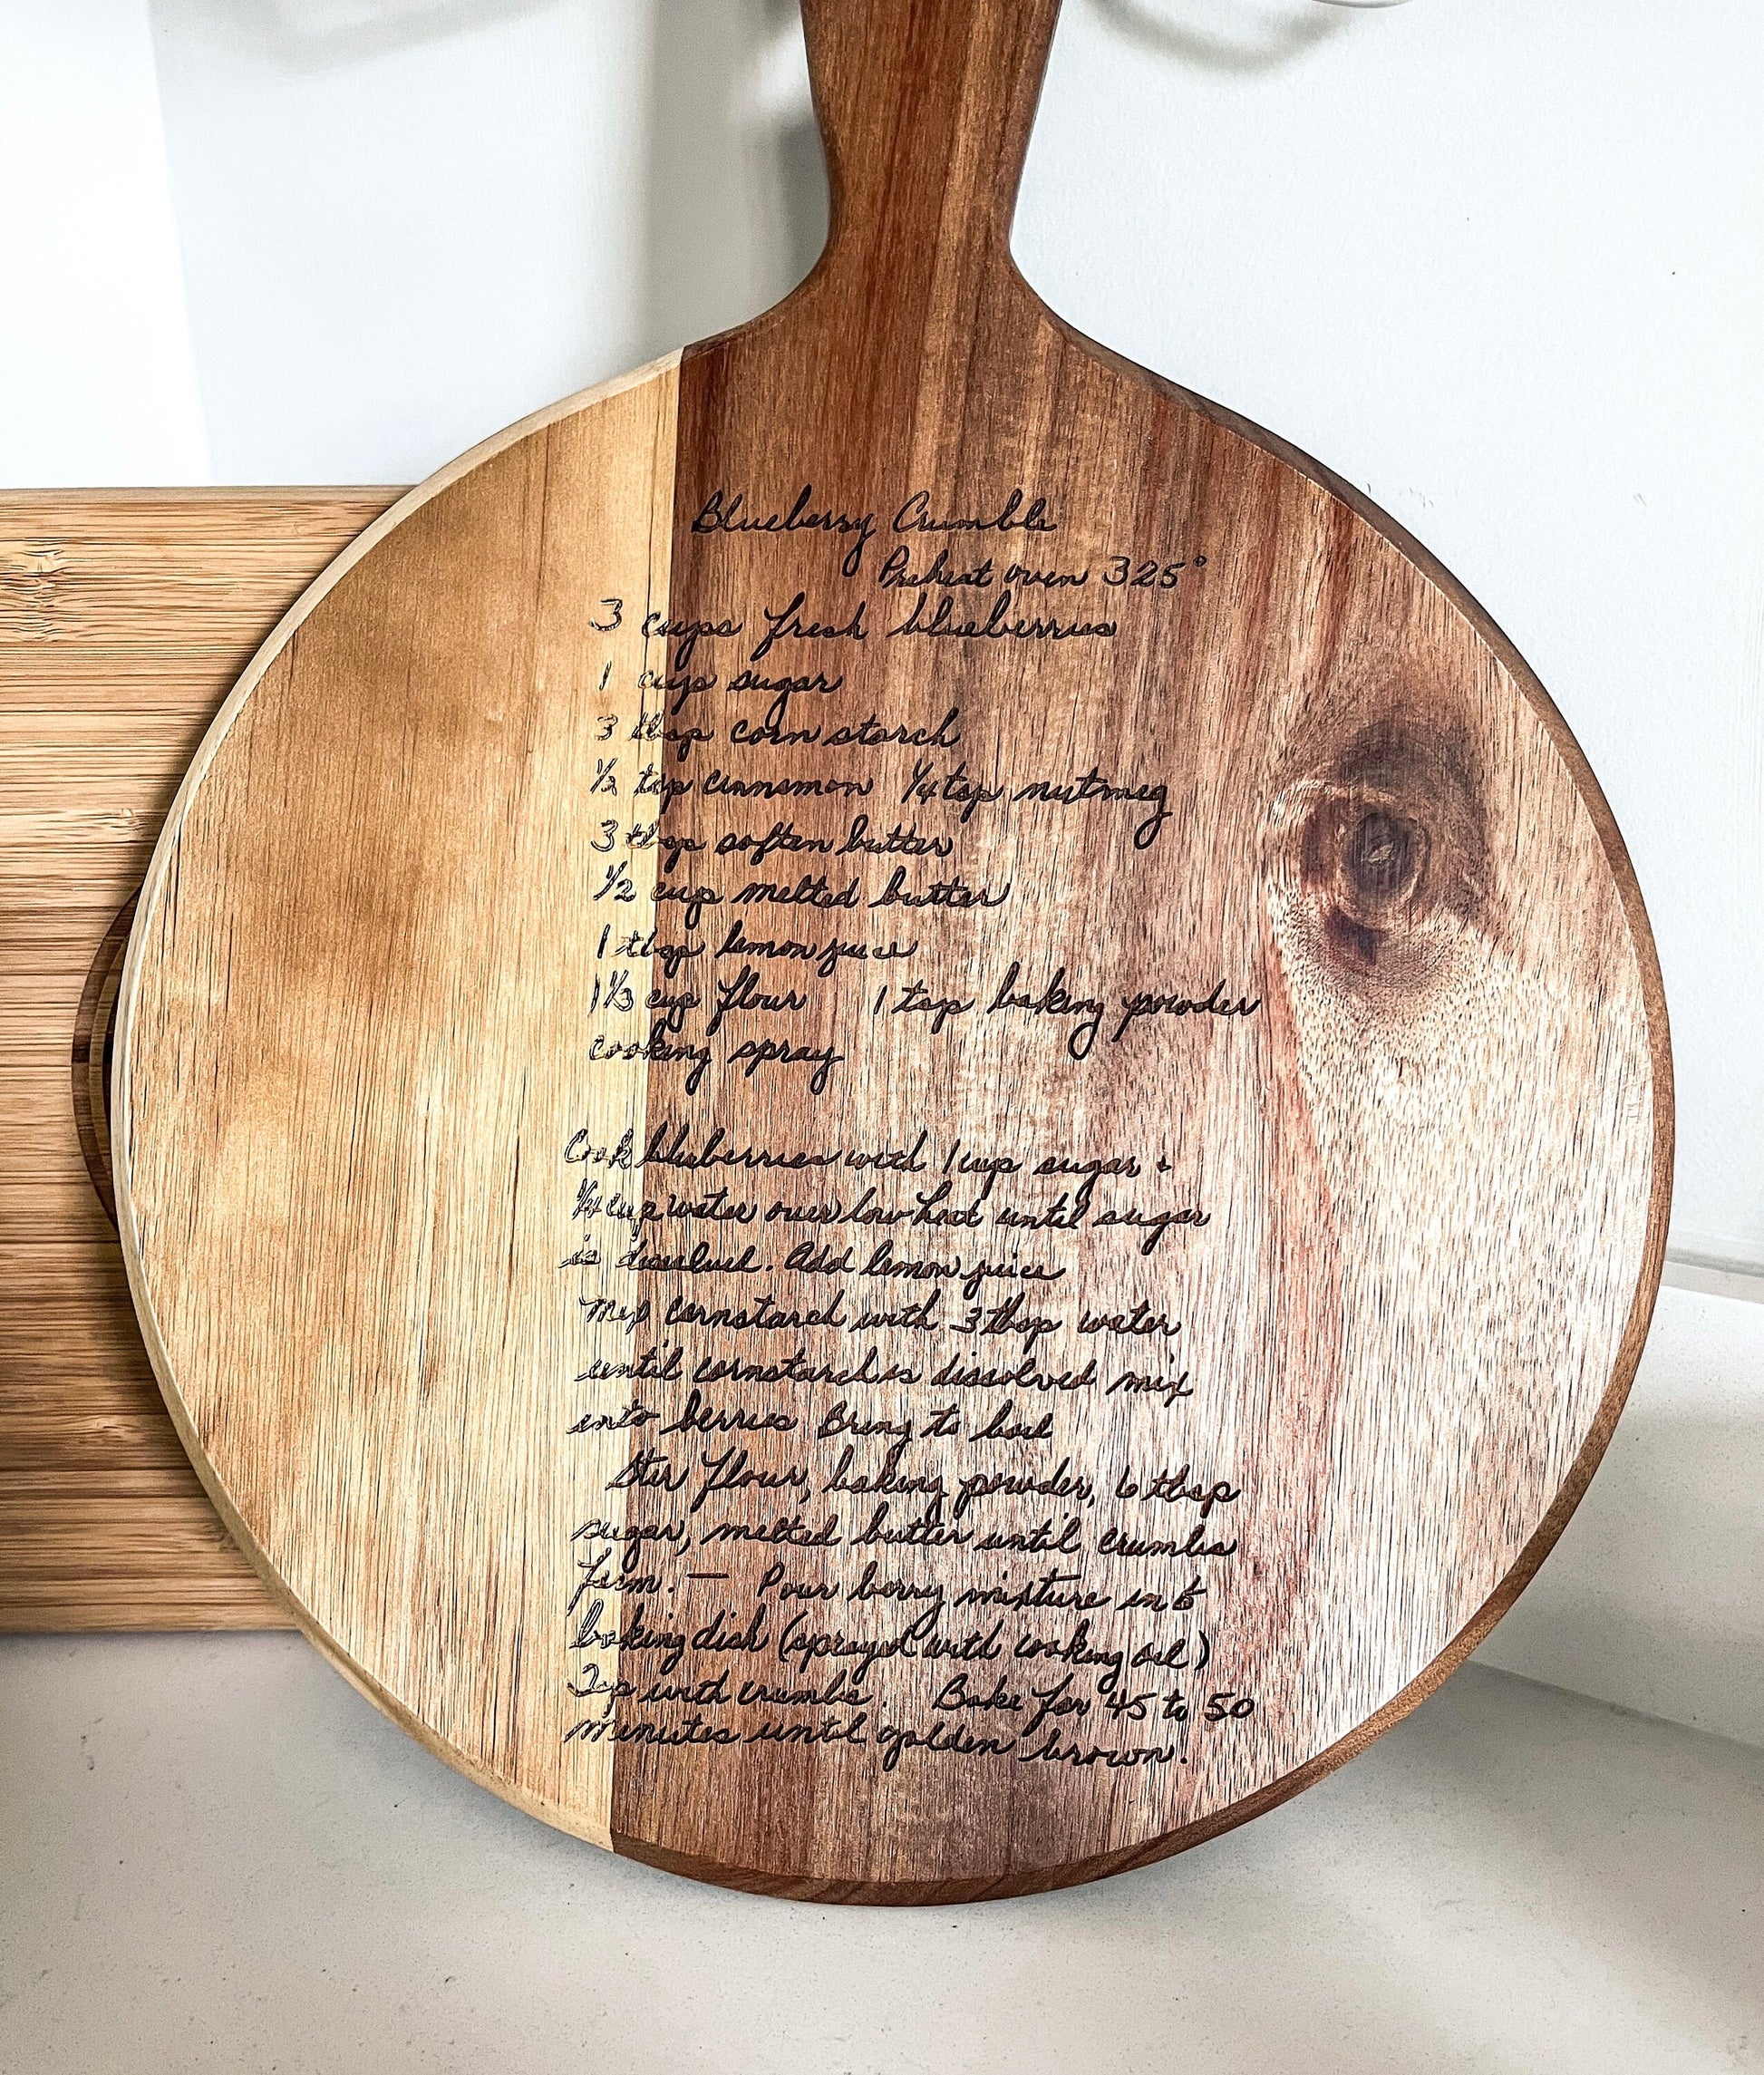 Blueberry Crumble
Preheat oven 325°
3 cups fresh blueberries
1 cup sugar
3 tbsp corn starch
1/2 tsp cinnamon 1/4 tsp nutmeg
3 tbsp soften butter
1/2 cup melted butter
1 tbsp lemon juice
1 1/3 cup flour 1 tsp baking powder
cooking spray
Cook blueberries with 1 cup sugar +
1/4 cup water over low heat until sugar
is dissolved. Add lemon juice
Mix cornstarch with 3 tbsp water
until cornstarch is dissolved mix
into berries Bring to boil
Stir flour, baking powder, 6 tbsp
sugar, melted butter until crumbs
form. — Pour berry mixture in
baking dish (sprayed with cooking oil)
Top with crumbs. Bake for 45 to 50
minutes until golden brown.